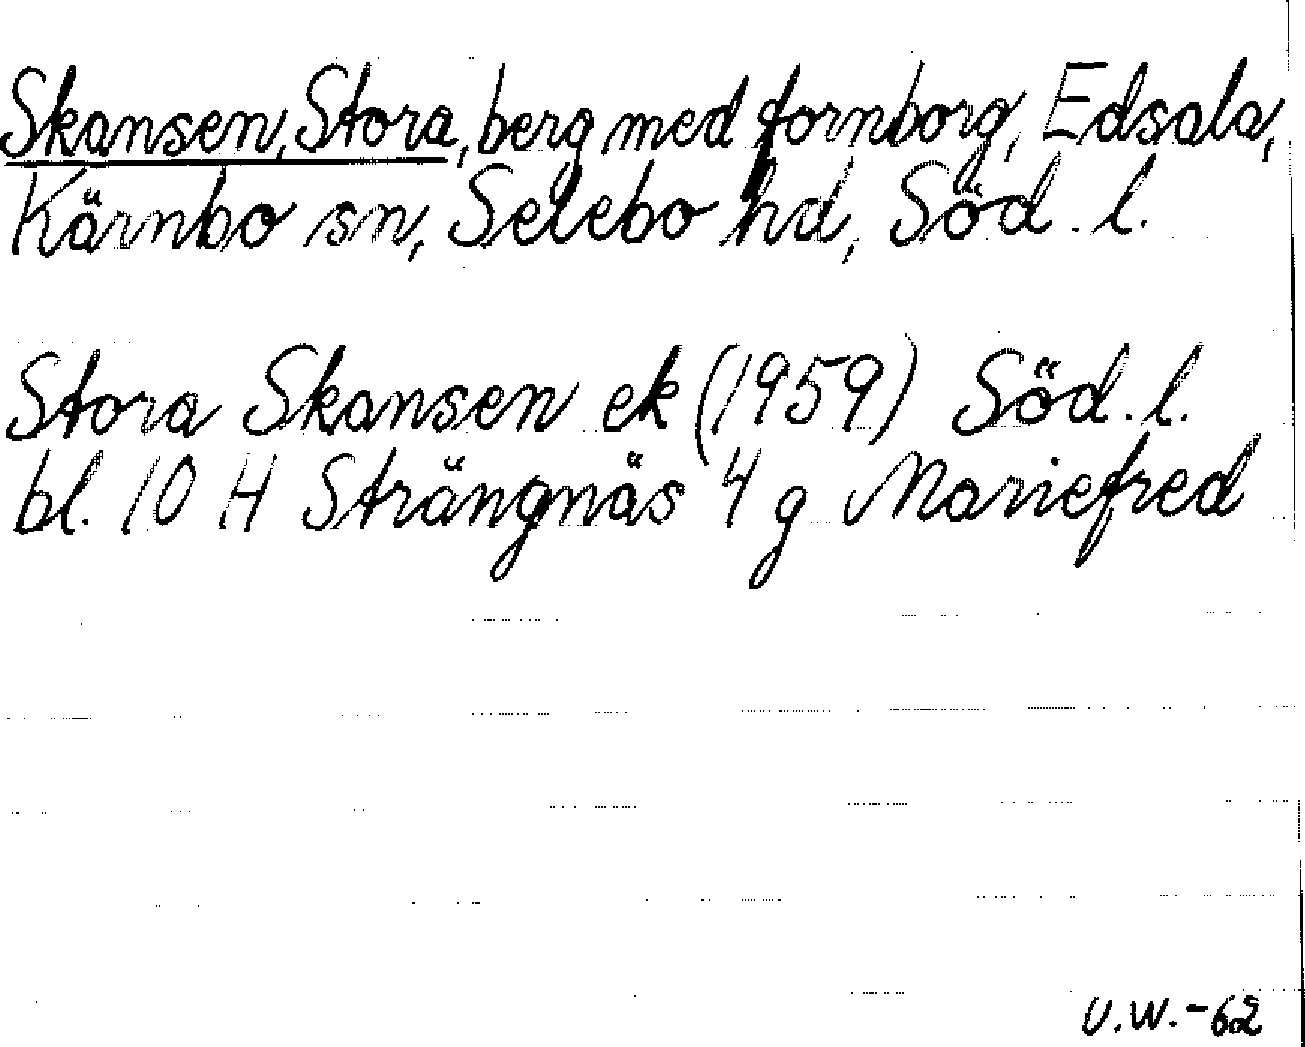 Skansen, Stora, berg med fornborg, Edsala,
Kärnbo sn, Selebo hd, Söd. l.
Stora Skansen ek (1959) Söd. l.
bl. 10 H Strängnäs 4 g Mariefred
U.W.-62